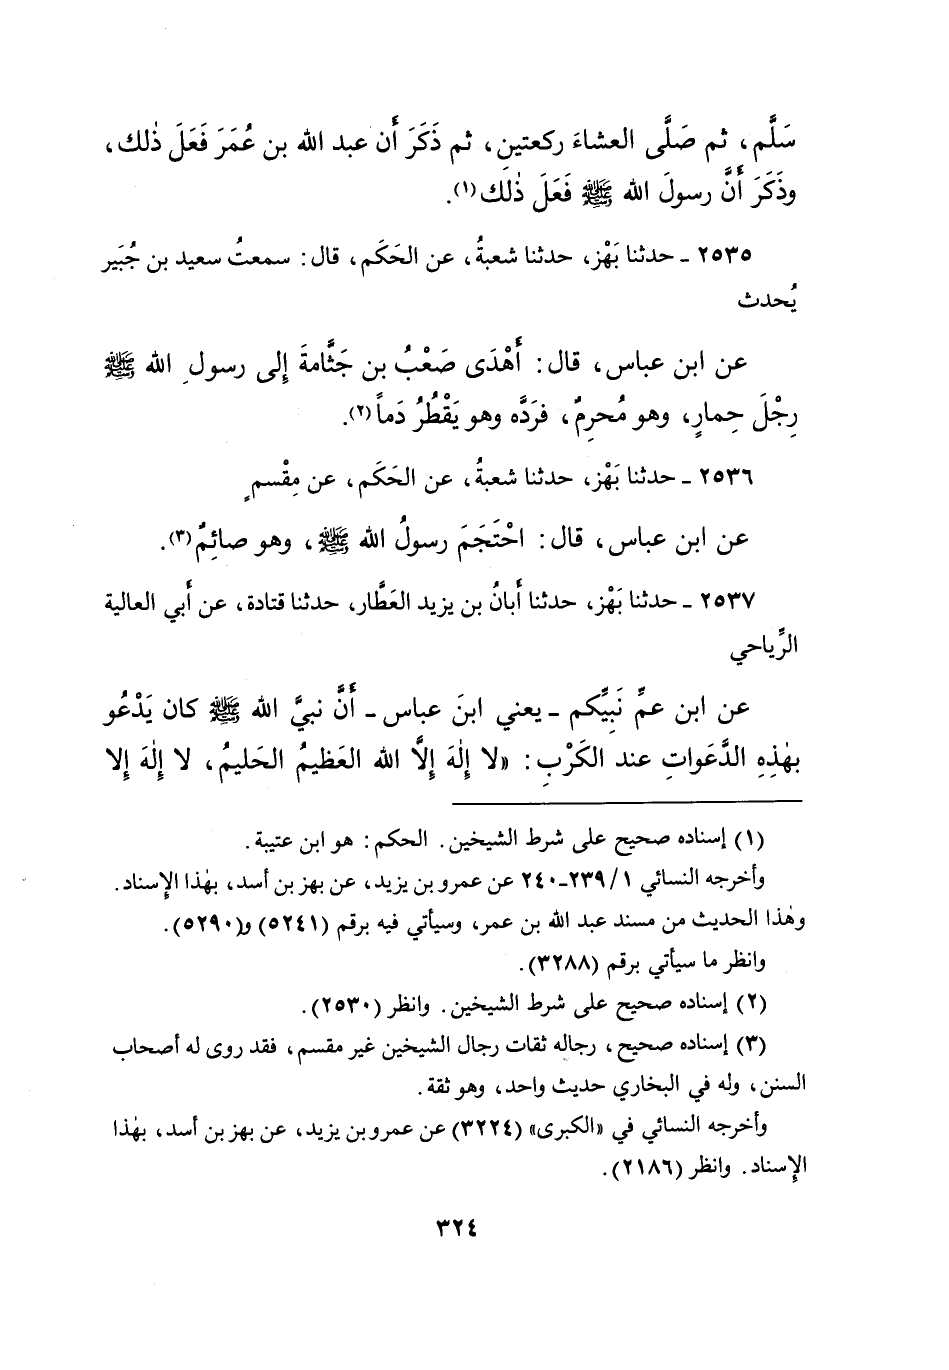 سَلَّم، ثم صَلَّى العشاءَ ركعتينِ، ثم ذَكَرَ أَن عبد الله بن عُمَرَ فَعَلَ ذٰلك،
وذَكَرَ أَنَّ رسولَ الله ﷺ فَعَلَ ذٰلك(١).
٢٥٣٥ ـ حدثنا بَهْز، حدثنا شعبةُ، عن الحَكَم، قال: سمعتُ سعيد بن جُبَير
يُحدث
عن ابن عباس، قال: أَهْدَى صَعْبُ بن جَثَّامةَ إِلى رسولِ الله ﷺ
رِجْلَ حِمارٍ، وهو مُحرِمٌ، فرَدَّه وهو يَقْطُرُ دَماً(٢).
٢٥٣٦ ـ حدثنا بَهْز، حدثنا شعبةُ، عن الحَكَم، عن مِقْسمٍ
عن ابن عباس، قال: احْتَجَمَ رسولُ الله ﷺ، وهو صائِمٌ(٣).
٢٥٣٧ ـ حدثنا بَهْز، حدثنا أَبانُ بن يزيد العَطَّار، حدثنا قتادة، عن أَبي العالية
الرِّياحي
عن ابن عمِّ نَبِيِّكم ـ يعني ابنَ عباس ـ أَنَّ نبيَّ الله ﷺ كان يَدْعُو
بهٰذِهِ الدَّعَواتِ عند الكَرْبِ: «لا إِلٰهَ إِلَّا الله العَظيمُ الحَليمُ، لا إِلٰهَ إِلا
(١) إسناده صحيح على شرط الشيخين. الحكم: هو ابن عتيبة.
وأخرجه النسائي ٢٣٩/١ـ٢٤٠ عن عمرو بن يزيد، عن بهز بن أسد، بهٰذا الإِسناد.
وهٰذا الحديث من مسند عبد الله بن عمر، وسيأتي فيه برقم (٥٢٤١) و(٥٢٩٠).
وانظر ما سيأتي برقم (٣٢٨٨).
(٢) إسناده صحيح على شرط الشيخين. وانظر (٢٥٣٠).
(٣) إسناده صحيح، رجاله ثقات رجال الشيخين غير مقسم، فقد روى له أصحاب
السنن، وله في البخاري حديث واحد، وهو ثقة.
وأخرجه النسائي في «الكبرى» (٣٢٢٤) عن عمرو بن يزيد، عن بهز بن أسد، بهٰذا
الإِسناد. وانظر (٢١٨٦).
٣٢٤